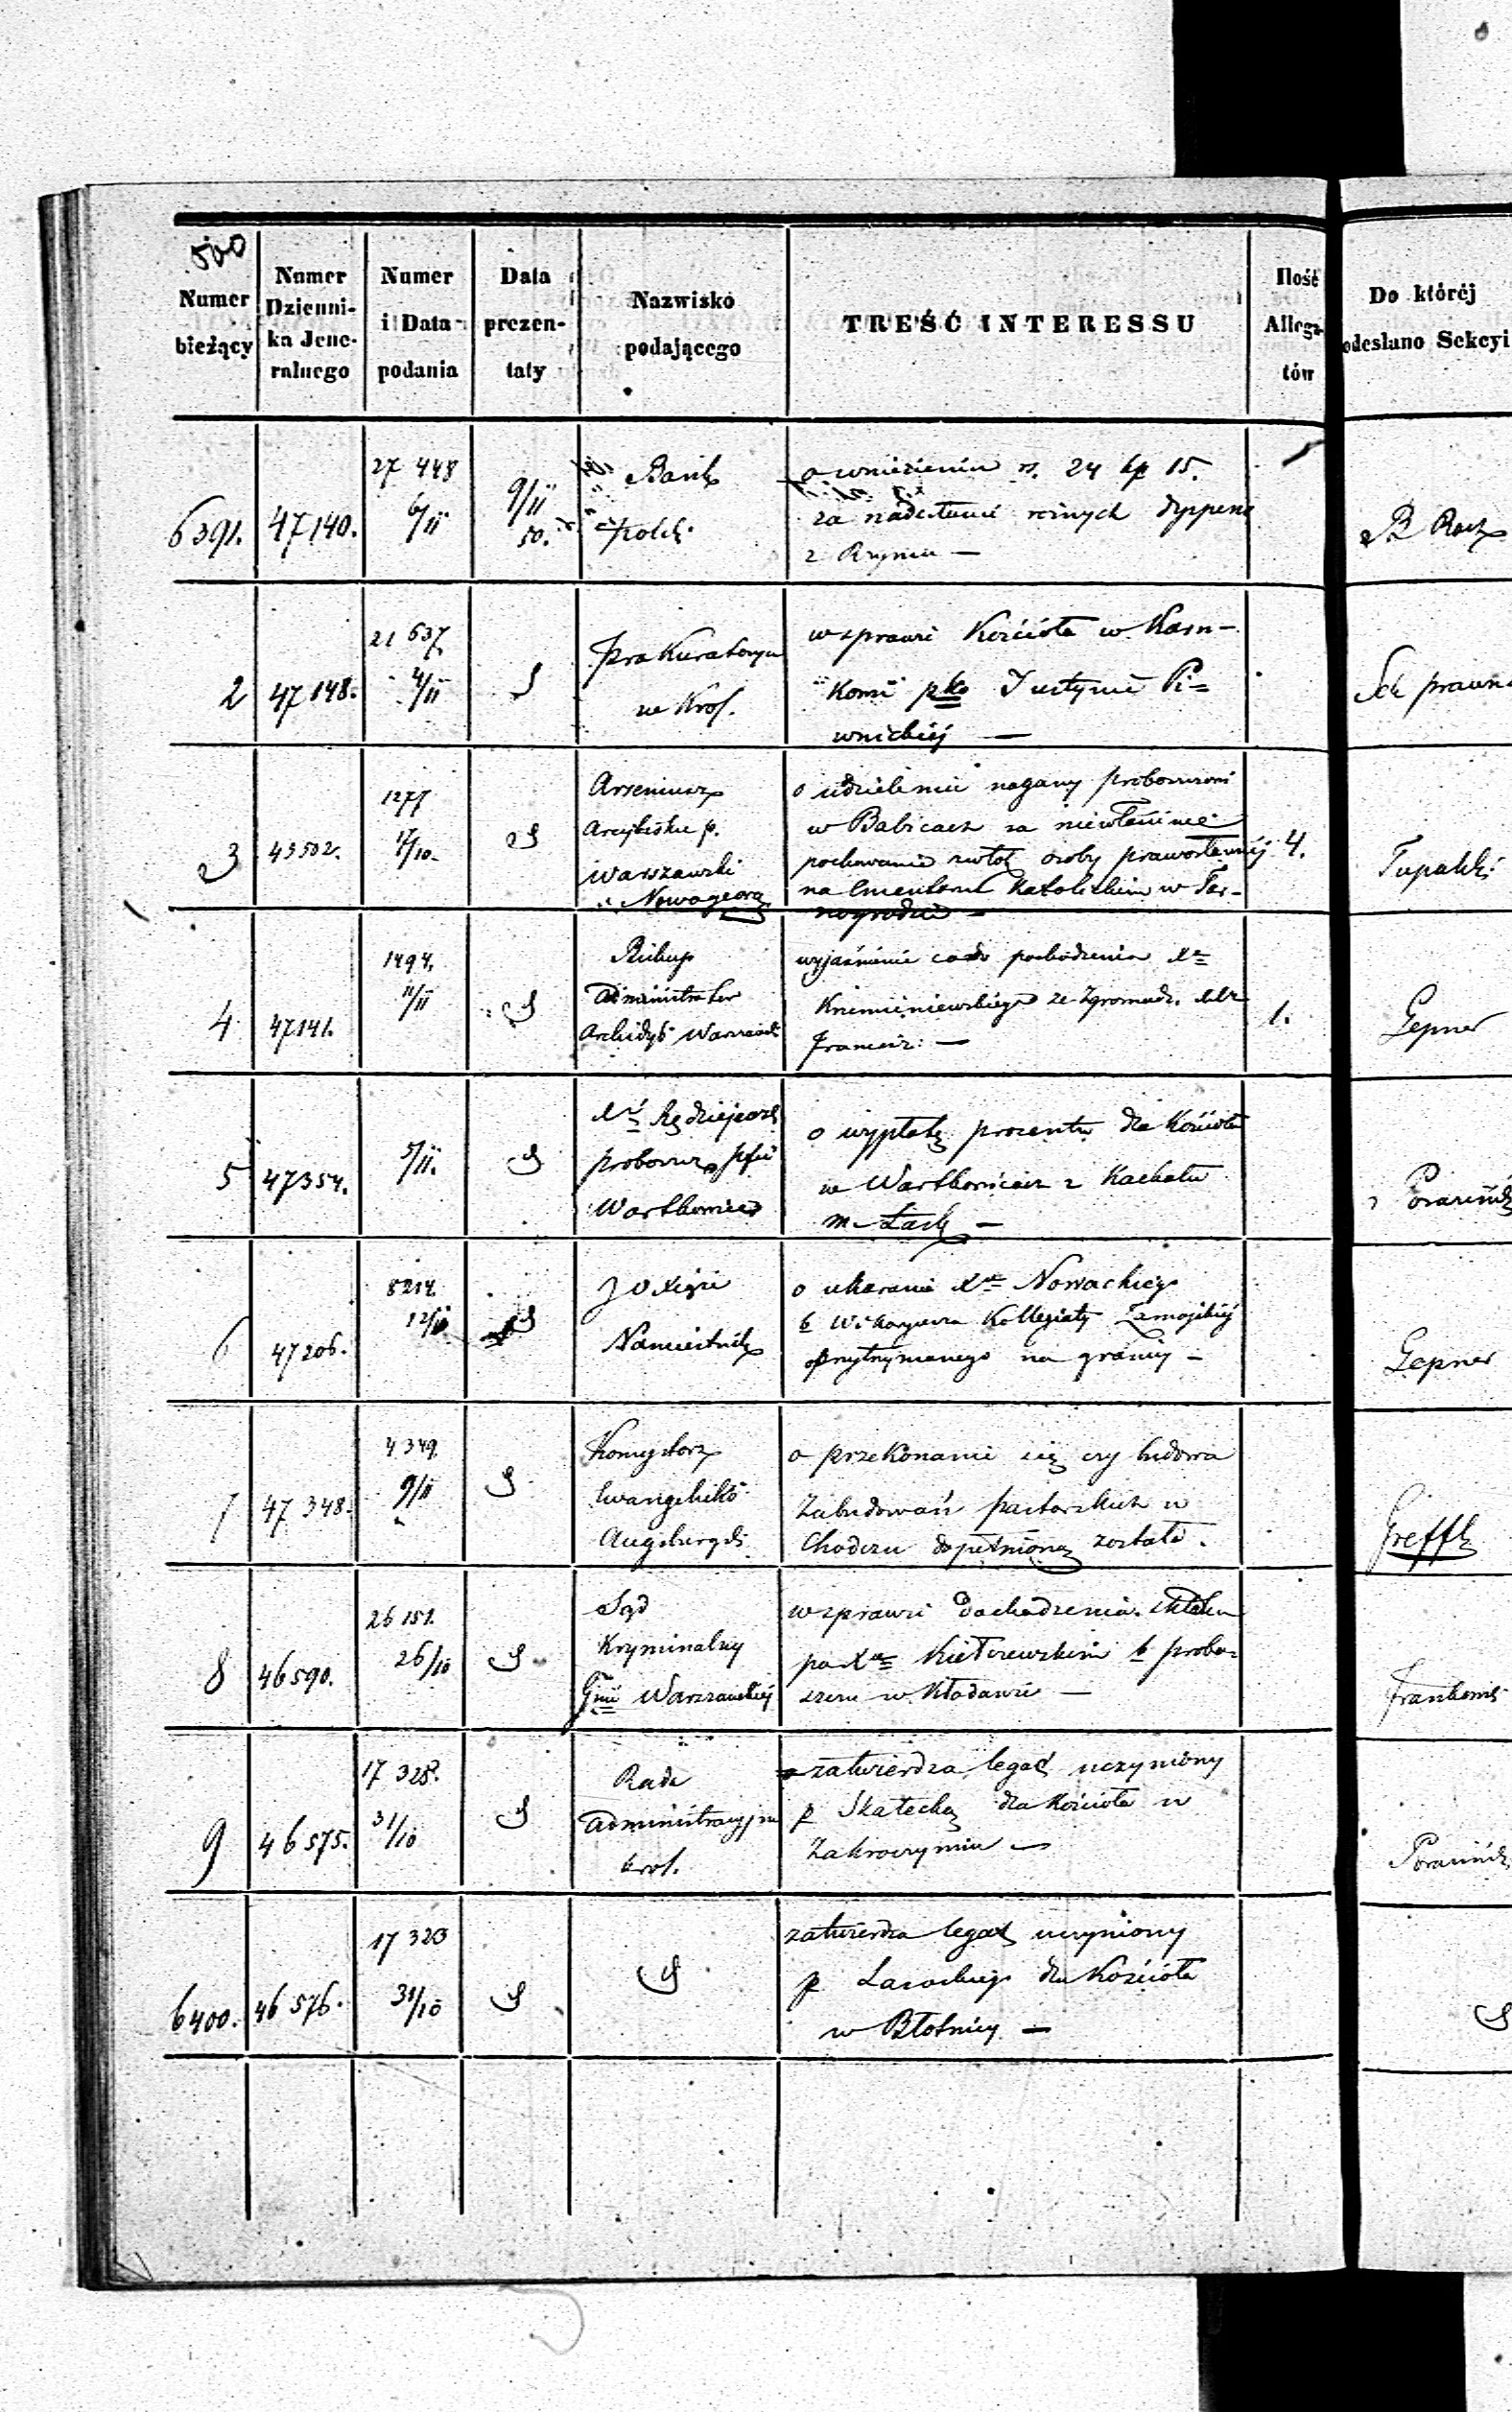 500
Numer bieżący
Numer Dzienni-ka Jene-ralnego
Numer i Data podania
Data prezen-taty
Nazwisko podającego
TREŚĆ INTERESSU
Ilość Allega-tów
Do któréj odesłano Sekcyi
6391.
47140.
27 448
6/11
9/11
50.
Bank
Polski
o wniesienie rs. 24 kp 15.
za nadesłanie rożnych dyspens
z Rzymu —
2
47148.
21 637
4/11
Prokuratorya
w Król.
w sprawie Kościoła w
pko Justynie Pi=
wnickiéj —
Sek prawna
3
43502.
1277
17/10.
Arseniusz
Arcybisku p.
Warszawski
i Nowogeorg
o udzielenie nagany proboszczowi
w Babicach za niewłaściwe
pochowanie zwłok osoby prawosławnéj
na Cmentarzu Katolickim w Tar-
nogrodzie —
4.
Tupalski
4
47141.
1494.
11/11
Biskup
Administrator
Archidy: Warszaw
wyjaśnienie co do pochodzenia Xa
Krzemieniewskiego ze Zgromadz.
Francisz: —
1.
Gepner
5
47354.
5/11.
proboszcz pfii
Wartkowice
o wypłatę procentu dla Kościoła
w Wartkowicach z Kachału
m. Łask —
6
47206.
8214.
12/11
JO Xiąże
Namiestnik
o ukaranie Xa Nowackiego
b Wikaryusza Kollegiaty Zamojskiéj
przytrzymanego na granicy —
Gepner
7
47 348.
4 349.
9/11
Konsystorz
Ewangelicko
Augsburgski
o przekonanie się czy budowa
Zabudowań pastorskich w
Chodczu dopełnioną została.
Greffk
8
46590.
26 151.
26/10
Sąd
Kryminalny
Gnii Warszawskiéj
w sprawie dochodzenia
po Xu Kiełczewskim b probo=
szczu w Kłodawie —
9
46575.
17 328.
31/10
Rada
Administracyjna
Król.
zatwierdza legat uczyniony
p Skałecką dla Kościoła w
Zakroczymiu —
6400.
46 576.
17 323
31/10
zatwierdza legat uczyniony
p Lasockiego dla Kościoła
w Błotnicy —